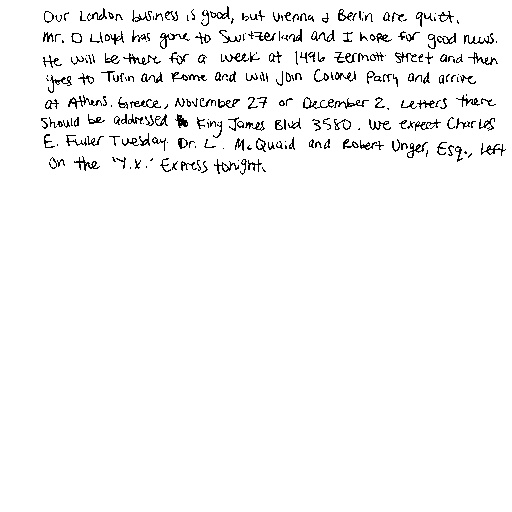 Our London business is good, but Vienna & Berlin are quiet.
Mr. D Lloyd has gone to Switzerland and I hope for good news.
He will be there for a week at 1496 Zermott Street and then
goes to Turin and Rome and will join Colonel Parry and arrive
at Athens, Greece, November 27 or December 2. Letters there
should be addressed to King James Blvd 3580. We expect Charles
E. Fuller Tuesday. Dr. L. McQuaid and Robert Unger, Esq., left
on the "Y.X." Express tonight.